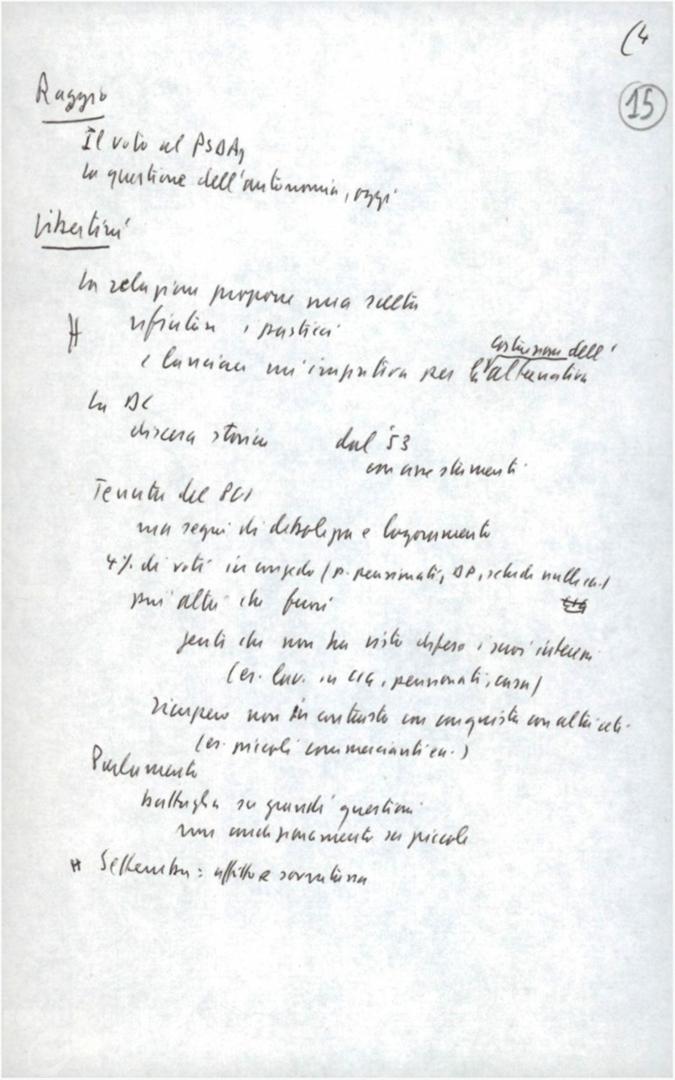 (4
15
Raggio
Il voto al PSDAz
la questione dell'autonomia, oggi
Libertini
la relazione propone una scelta
H rifiutare i pasticci
e lanciare un'iniziativa per l'alternativa
costruzione dell'
la DC
discesa storica dal '53
con
Tenuta del PCI
ma segni di debolezza e logoramento
4% di voti in congedo (p. pensionati, DP, schede nulle ecc.)
più altri che fuori
gente che non ha visto difesi i suoi interessi
(es. lav. in CIG, pensionati, casa)
recupero non in contrasto con conquista con altri ceti
(es. piccoli commercianti ecc.)
Parlamento
battaglia su grandi questioni
non su piccole
H Settembre: affitto e